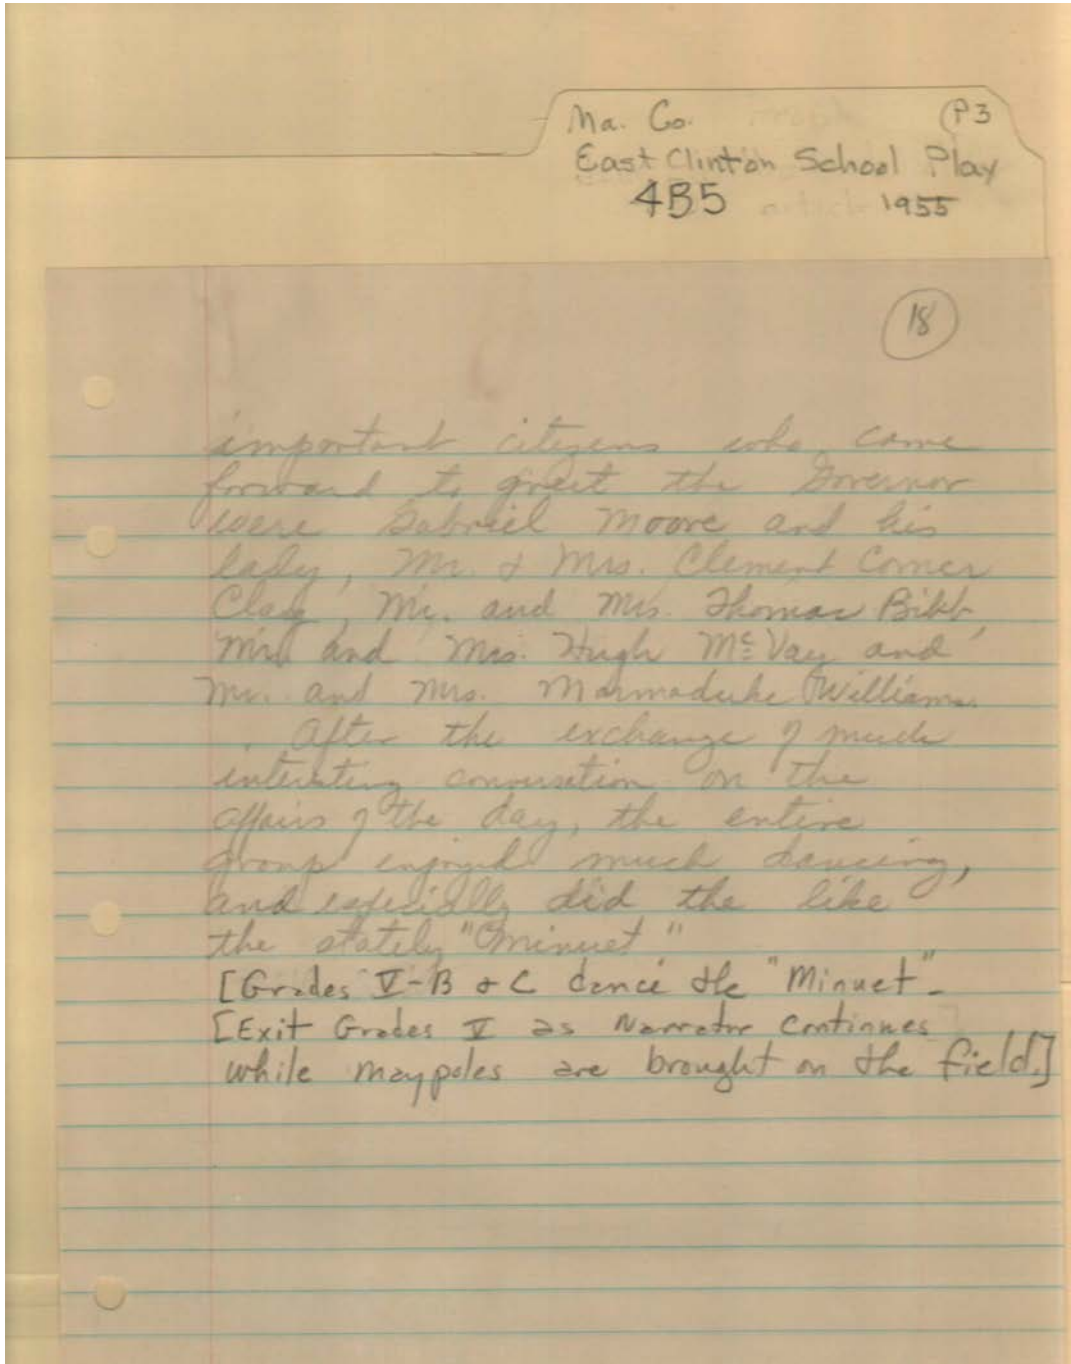 Ma. Co. P3
East Clinton School Play
4B5 1955
18
important citizens who came
forward to greet the Governor
were Gabriel Moore and his
lady, Mr. & Mrs. Clement Comer
Clay, Mr. and Mrs. Thomas Bibb,
Mr. and Mrs. Hugh McVay and
Mr. and Mrs. Marmaduke Williams.
After the exchange of much
interesting conversation on the
affairs of the day, the entire
group enjoyed much dancing,
and especially did the like
the stately "Minuet"
[Grades V-B & C dance the "Minuet".
[Exit Grades V as Narrator continues
while maypoles are brought on the field.]